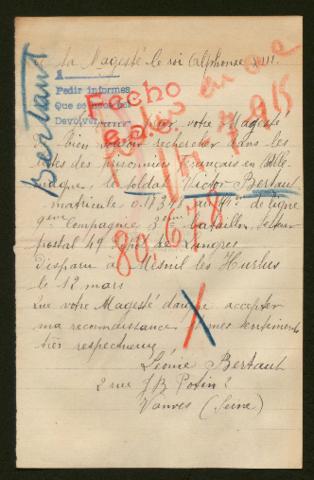 Sa Magesté le roi Alphonse XIII
Bertaut
1
Pedir informes
Que se
Devolver
Fecho
e.o.c.
votre Magesté
bien vouloir rechercher dans les
des prisonniers Français en Alle
magnes le soldat Victor Bertaut
matricule 01831 ligne
9eme Compagnie 3eme bataillon secteur
postal 49 de Langres
Disparu à Mesnil les Hurlus
le 12 mars
80,678
Que votre Magesté daigne accepter
ma reconnaissance mes sentiments
très respectueux
Léonie Bertaut
2 rue J B Potin 2
Vanves (Seine)